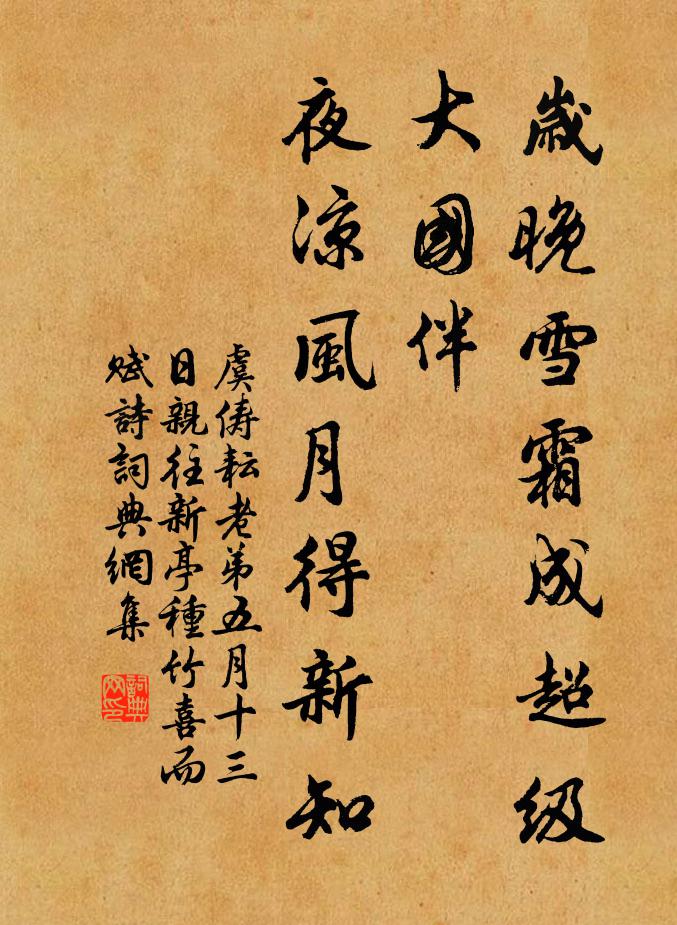 歲晚雪霜成超级
大國伴
夜涼風月得新知
虞俦耘老弟五月十三
日親往新亭種竹喜而
赋詩詞典網集
詞典網印